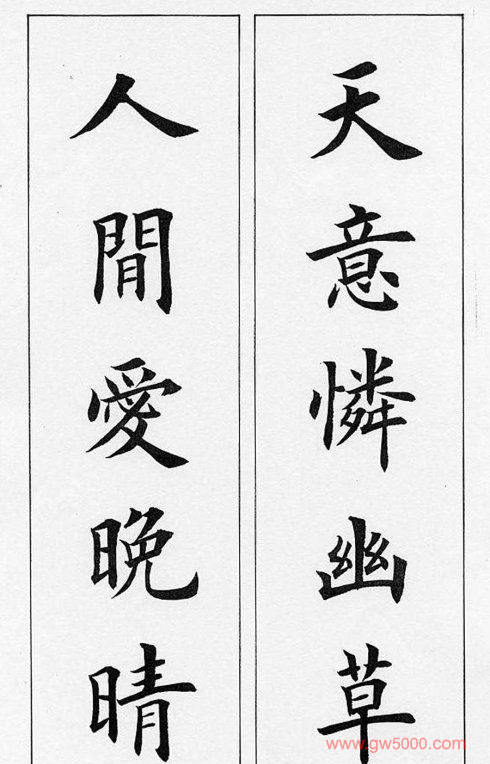 天意憐幽草
人間愛晚晴
www.gw5000.com